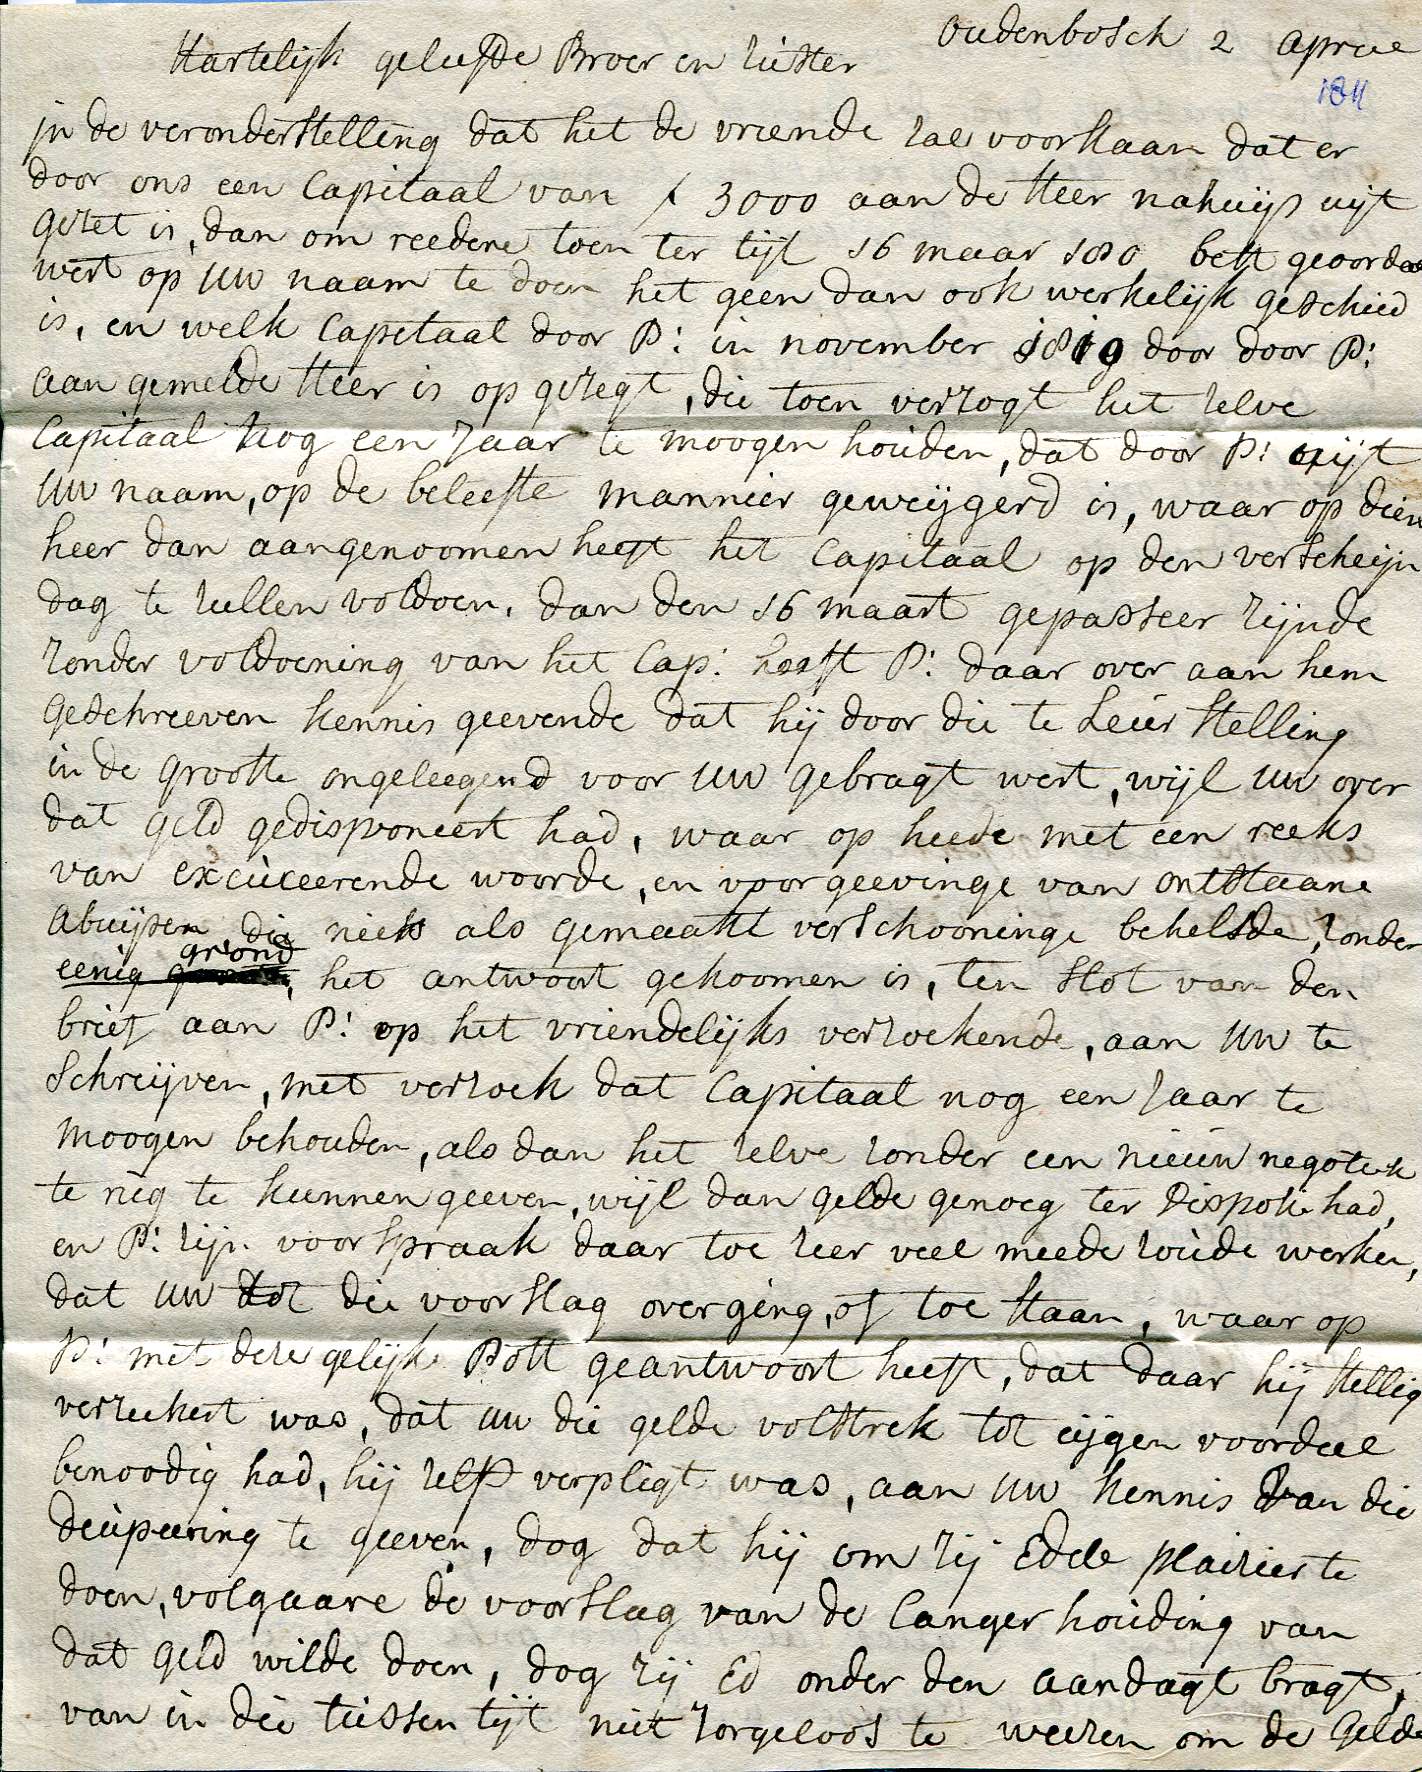 Oudenbosch 2 Aprue
1811
Hartelijk geliefde Broer en zuster
jn de veronderstelling dat het de vriende zal voorstaan dat er
door ons een Capitaal van f 3000 aan de Heer nahuijs uijt
gezet is, dan om reedene toen ter tijt 16 maar best geoordee
wert op uw naam te doen het geen dan ook werkelijk geschied
is, en welk Capitaal door P: in november door door P:
aan gemelde Heer is op gezegt, die toen verzogt het zelve
Capitaal nog een Jaar te moogen houden, dat door P: uijt
uw naam, op de beleefte mannier geweijgerd is, waar op dien
heer dan aangenoomen heeft het Capitaal op den verscheijn
dag te zullen voldoen, dan den 16 maart gepasseer zijnde
zonder voldoening van het Cap: heeft P: daar over aan hem
geschreeven kennis geevende dat hij door die te Leurstelling
in de grootte ongeleegend voor uw gebragt wert, wijl uw over
dat geld gedisponeert had, waar op heede met een reeks
van excuceerende woorde, en voorgeevinge van ontstaane
abuijsen die niets als gemaakte verschooninge behelsde, zonder
eenig grond, het antwoort gekoomen is, ten slot van den
brief aan P: op het vriendelijks verzoekende, aan uw te
Schreijven, met verzoek dat Capitaal nog een Jaar te
moogen behouden, als dan het zelve zonder een nieuw negotie
te nig te kunnen geeven, wijl dan gelde genoeg ter dispositie had,
en P: zijn voorspraak daar toe zeer veel meede zoude werken,
dat uw tot die voorslag overging, of toe staan, waar op
P: met dezelgelijk Post geantwoort heeft, dat daar hij stellig
verzeekert was, dat uw die gelde volstrek tot eijgen voordeel
benoodig had, hij zelfs verpligt was, aan uw kennis van die
te geeven, dog dat hij om zij Edele plaizier te
doen, volgaare de voorslag van de langer houding van
dat geld wilde doen, dog zij Ed onder den aandagt bragt,
van in die tussen tijt niet zorgeloos te weezen om de Gelde